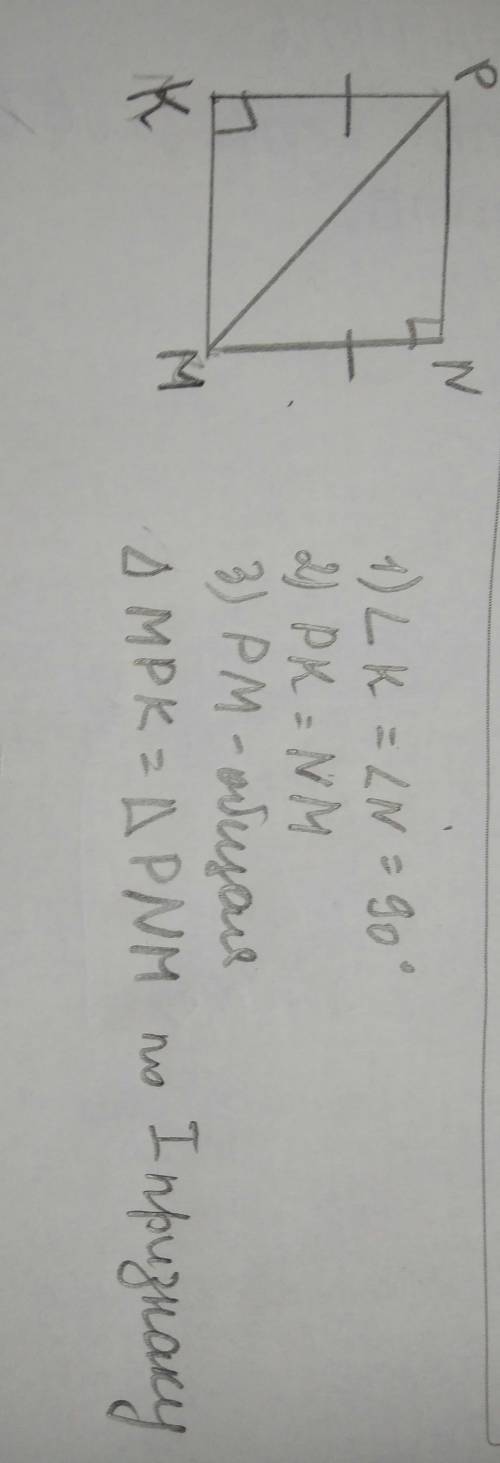 K
P
M
N
1) ∠K = ∠N = 90°
2) PK = NM
3) PM - общая
Δ MPK = Δ PNM по I признаку